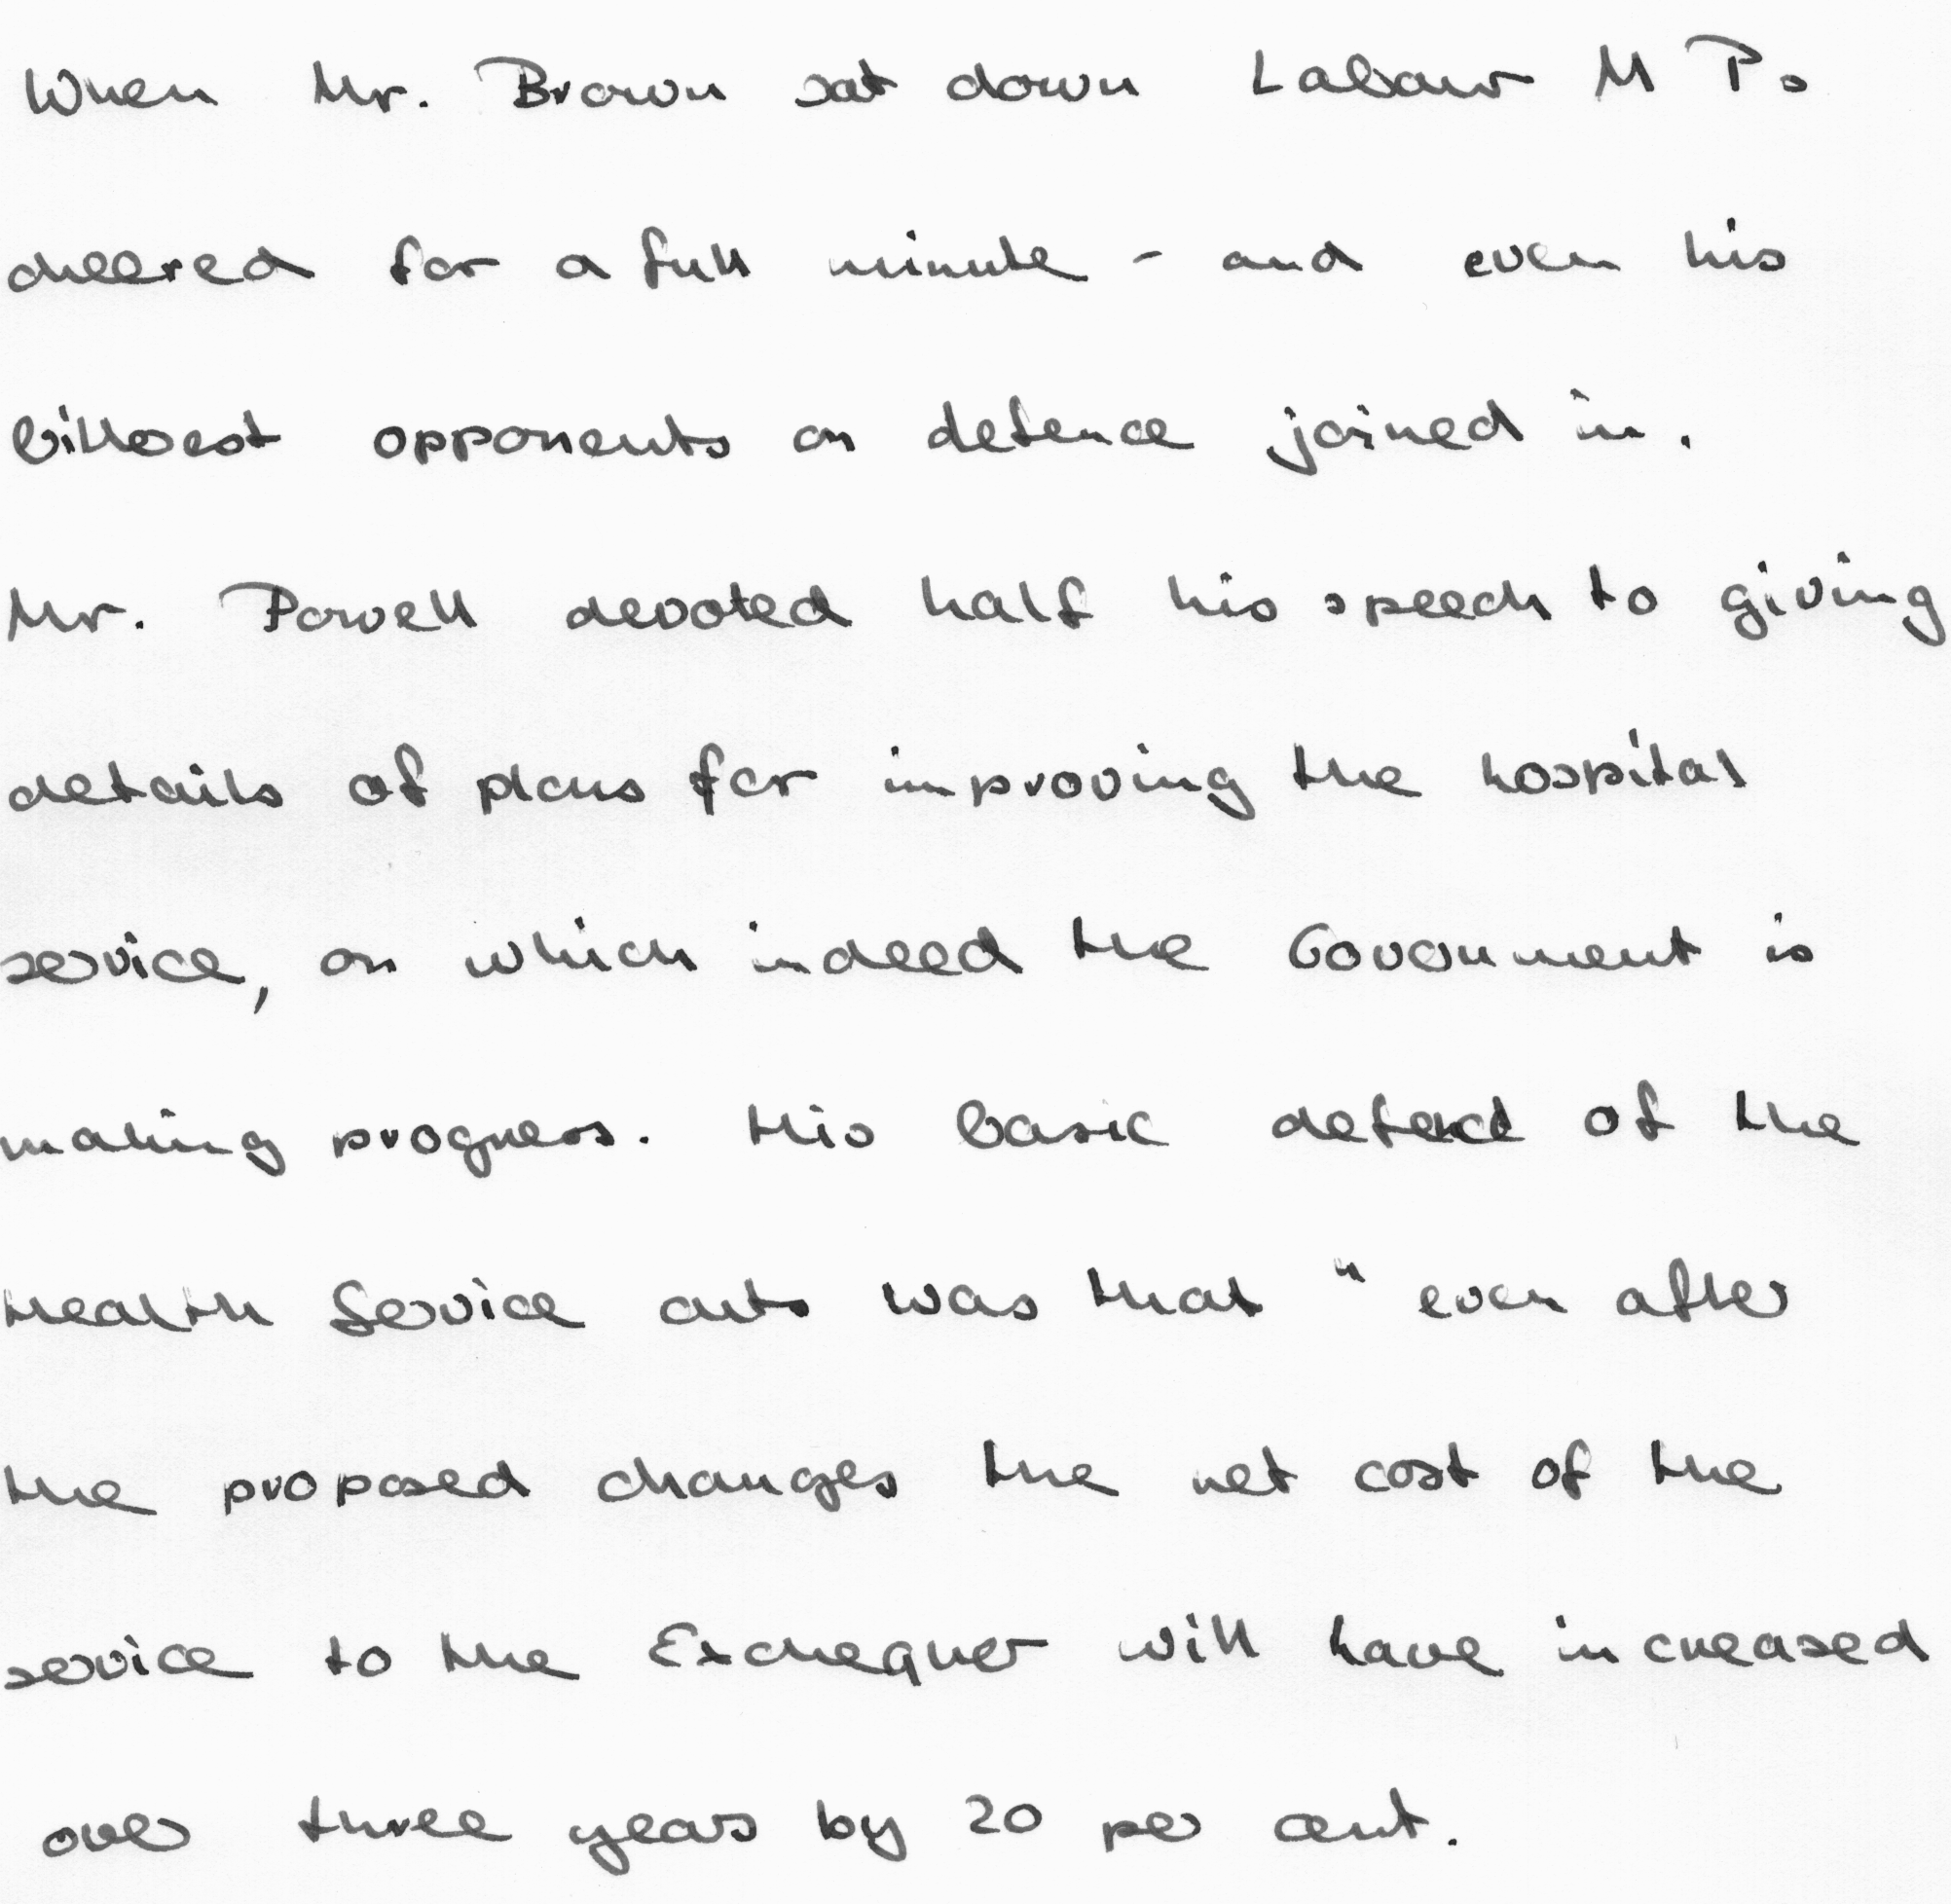 When Mr. Brown sat down Labour M Ps
cheered for a full minute - and even his
bitterest opponents on defence joined in.
Mr. Powell devoted half his speech to giving
details of plans for improving the hospital
service, on which indeed the Government is
making progress. His basic defence of the
Health Service cuts was that " even after
the proposed changes the net cost of the
service to the Exchequer will have increased
over three years by 20 per cent.